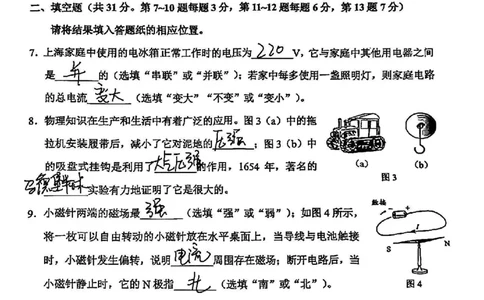 二、填空题（共31分。第7~10题每题3分，第11~12题每题6分，第13题7分）
请将结果填入答题纸的相应位置。
7. 上海家庭中使用的电冰箱正常工作时的电压为 220 V，它与家庭中其他用电器之间
是 并 的（选填“串联”或“并联”）；若家中每多使用一盏照明灯，则家庭电路
的总电流 变大 （选填“变大”“不变”或“变小”）。
8. 物理知识在生产和生活中有着广泛的应用。图3（a）中的拖
拉机安装履带后，减小了它对泥地的 压强 ；图3（b）中
的吸盘式挂钩是利用了 大气压强 的作用，1654年，著名的
马德堡半球 实验有力地证明了它是很大的。
(a) (b)
图3
9. 小磁针两端的磁场最 强 （选填“强”或“弱”）；如图4所示，
将一枚可以自由转动的小磁针放在水平桌面上，当导线与电池触接
时，小磁针发生偏转，说明 电流 周围存在磁场；断开电路后，当
小磁针静止时，它的N极指 北 （选填“南”或“北”）。
触接
- +
I
S N
图4